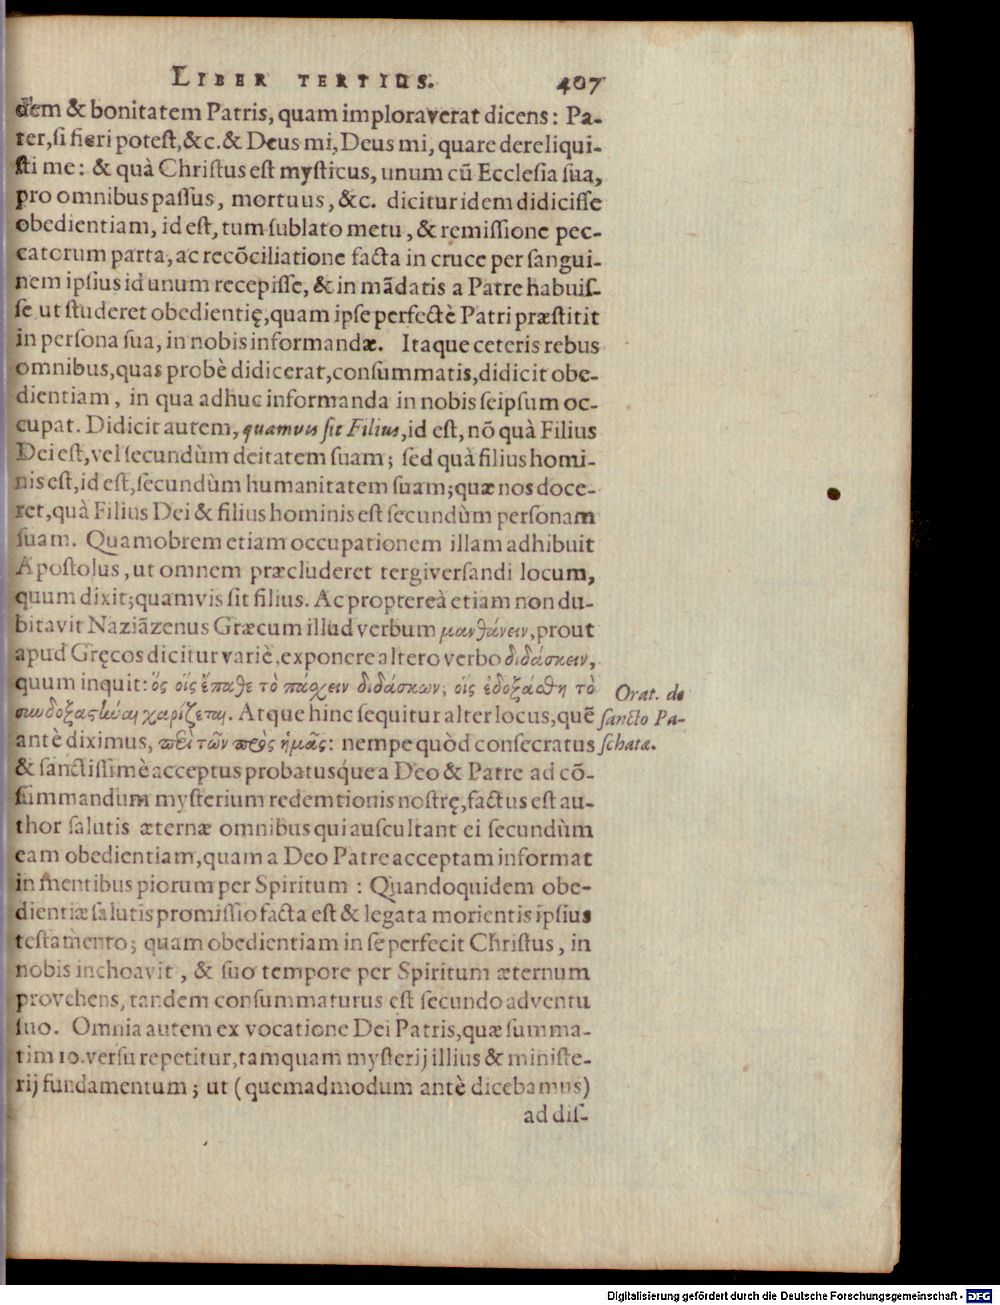 LIBER TERTIUS. 407
dem & bonitatem Patris, quam imploraverat dicens: Pa-
ter, si fieri potest, &c. & Deus mi, Deus mi, quare dereliqui-
sti me: & quà Christus est mysticus, unum cũ Ecclesia sua,
pro omnibus passus, mortuus, &c. dicitur idem didicisse
obedientiam, id est, tum sublato metu, & remissione pec-
catorum parta, ac recõciliatione facta in cruce per sangui-
nem ipsius id unum recepisse, & in mãdatis a Patre habuis-
se ut studeret obedientię, quam ipse perfectè Patri præstitit
in persona sua, in nobis informandæ. Itaque ceteris rebus
omnibus, quas probè didicerat, consummatis, didicit obe-
dientiam, in qua adhuc informanda in nobis seipsum oc-
cupat. Didicit autem, quamvis sit Filius, id est, nõ quà Filius
Dei est, vel secundùm deitatem suam; sed quà filius homi-
nis est, id est, secundùm humanitatem suam; quæ nos doce-
ret, quà Filius Dei & filius hominis est secundùm personam
suam. Quamobrem etiam occupationem illam adhibuit
Apostolus, ut omnem præcluderet tergiversandi locum,
quum dixit; quamvis sit filius. Ac propterea etiam non du-
bitavit Naziãzenus Græcum illud verbum μανθάνειν, prout
apud Gręcos dicitur variè, exponere altero verbo διδάσκειν,
quum inquit: ὅς οἷς ἔπαθε τὸ πάσχειν διδάσκων, οἷς ἐδοξάσθη τὸ
συνδοξασθῆναι χαρίζεται. Atque hinc sequitur alter locus, quẽ
antè diximus, περὶ τῶν πρὸς ἡμᾶς: nempe quòd consecratus
Orat. de
sancto Pa-
schata.
& sanctissimè acceptus probatusque a Deo & Patre ad cõ-
summandum mysterium redemtionis nostrę, factus est au-
thor salutis æternæ omnibus qui auscultant ei secundùm
eam obedientiam, quam a Deo Patre acceptam informat
in mentibus piorum per Spiritum: Quandoquidem obe-
dientiæ salutis promissio facta est & legata morientis ipsius
testamento; quam obedientiam in se perfecit Christus, in
nobis inchoavit, & suo tempore per Spiritum æternum
provehens, tandem consummaturus est secundo adventu
suo. Omnia autem ex vocatione Dei Patris, quæ summa-
tim 10. versu repetitur, tamquam mysterij illius & ministe-
rij fundamentum; ut (quemadmodum antè dicebamus)
ad dis-
Digitalisierung gefördert durch die Deutsche Forschungsgemeinschaft - DFG